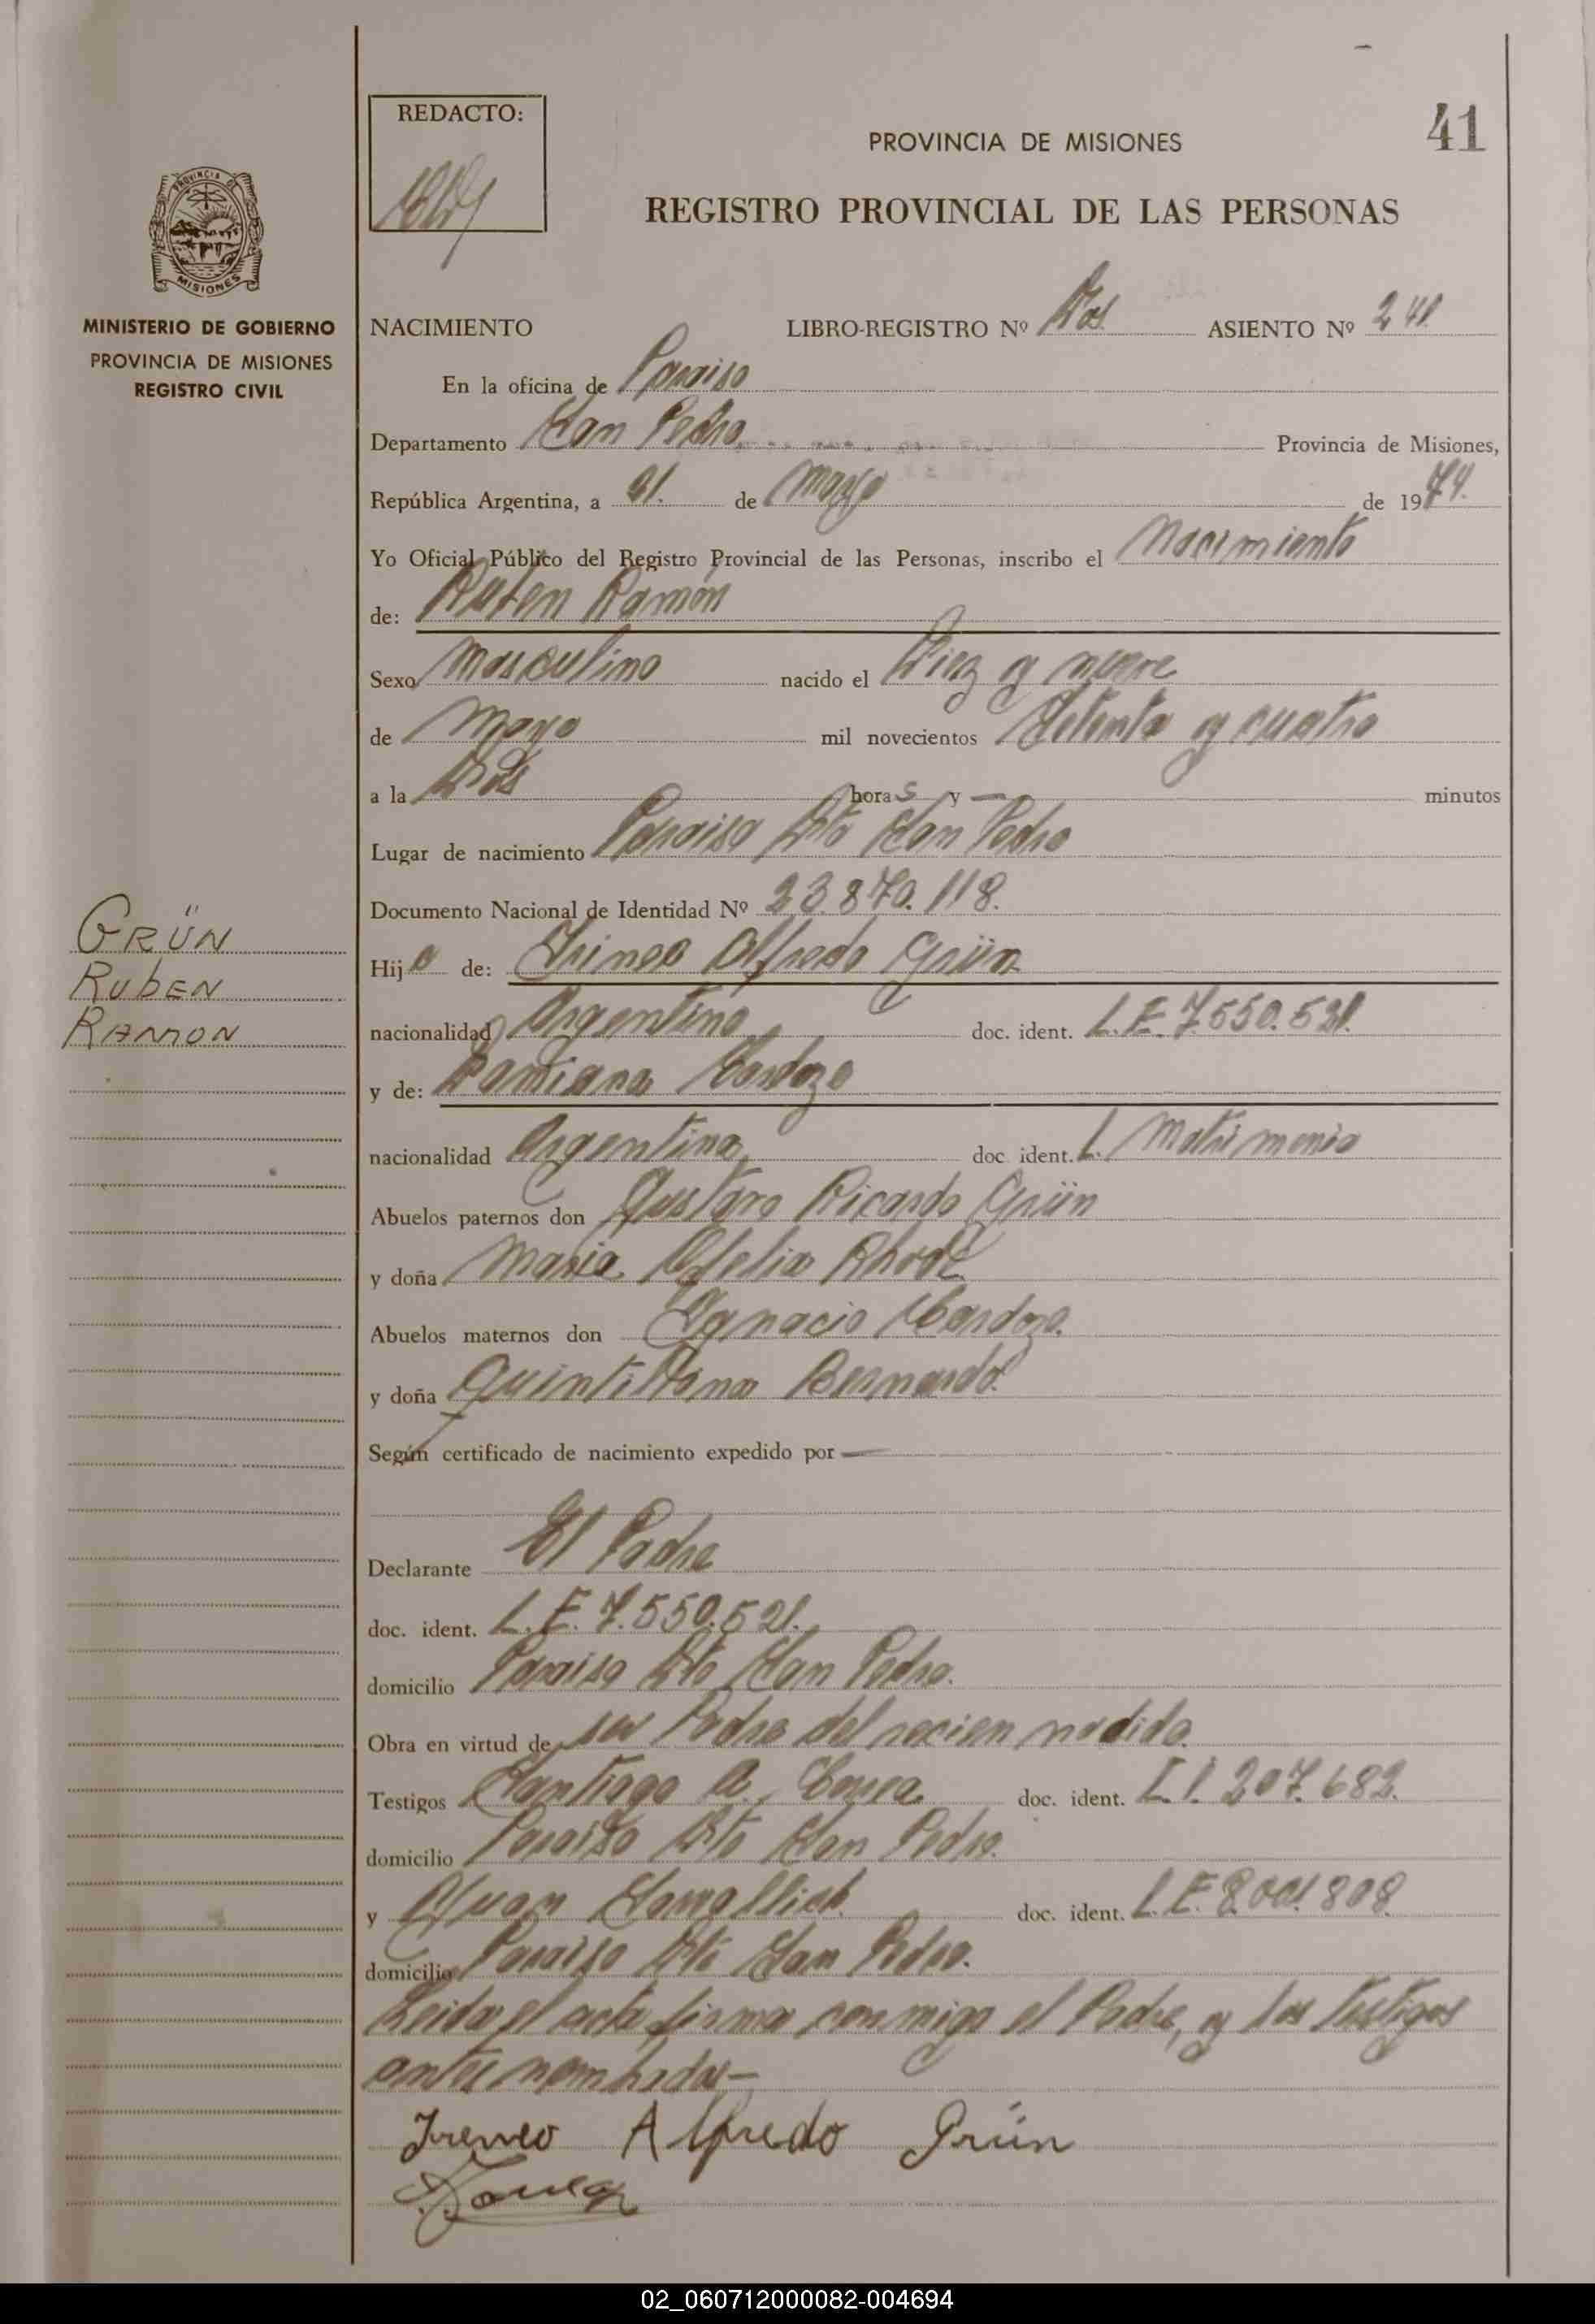 REDACTO:
41
PROVINCIA DE MISIONES
REGISTRO PROVINCIAL DE LAS PERSONAS
PROVINCIA DE
MISIONES
MINISTERIO DE GOBIERNO
PROVINCIA DE MISIONES
REGISTRO CIVIL
NACIMIENTO LIBRO-REGISTRO Nº Dos ASIENTO Nº 241
En la oficina de Paraiso
Departamento San Pedro Provincia de Misiones,
República Argentina, a de Mayo de 1974.
Yo Oficial Público del Registro Provincial de las Personas, inscribo el Nacimiento
de: Ruben Ramón
Sexo Masculino nacido el Diez y nueve
de Mayo mil novecientos Setenta y cuatro
a la Dos horas y — minutos
Lugar de nacimiento Paraiso Dto San Pedro
Documento Nacional de Identidad Nº 23.870.118.
GRÜN
RUbEN
RAMON
Hijo de: Irineo Alfredo Grün
nacionalidad Argentino doc. ident. L.E. 7.550.521.
y de: Damiana Cardozo
nacionalidad Argentina doc ident. L. Matrimonio
Abuelos paternos don Gustavo Ricardo Grün
y doña Maria Ofelia
Abuelos maternos don Ygnacio Cardozo.
y doña Bernardo
Según certificado de nacimiento expedido por —
Declarante El Padre
doc. ident. L.E. 7.550.521.
domicilio Paraiso Dto San Pedro.
Obra en virtud de ser Padre del recien nacido.
Testigos Santiago A. doc. ident. 207.682.
domicilio Paraiso Dto San Pedro.
y Juan doc. ident. L.E. 8.001.808
domicilio Paraiso Dto San Pedro.
Leida el acta firma conmigo el Padre, y los Testigos
antes nombrados—
Ireneo Alfredo Grün
02_060712000082-004694